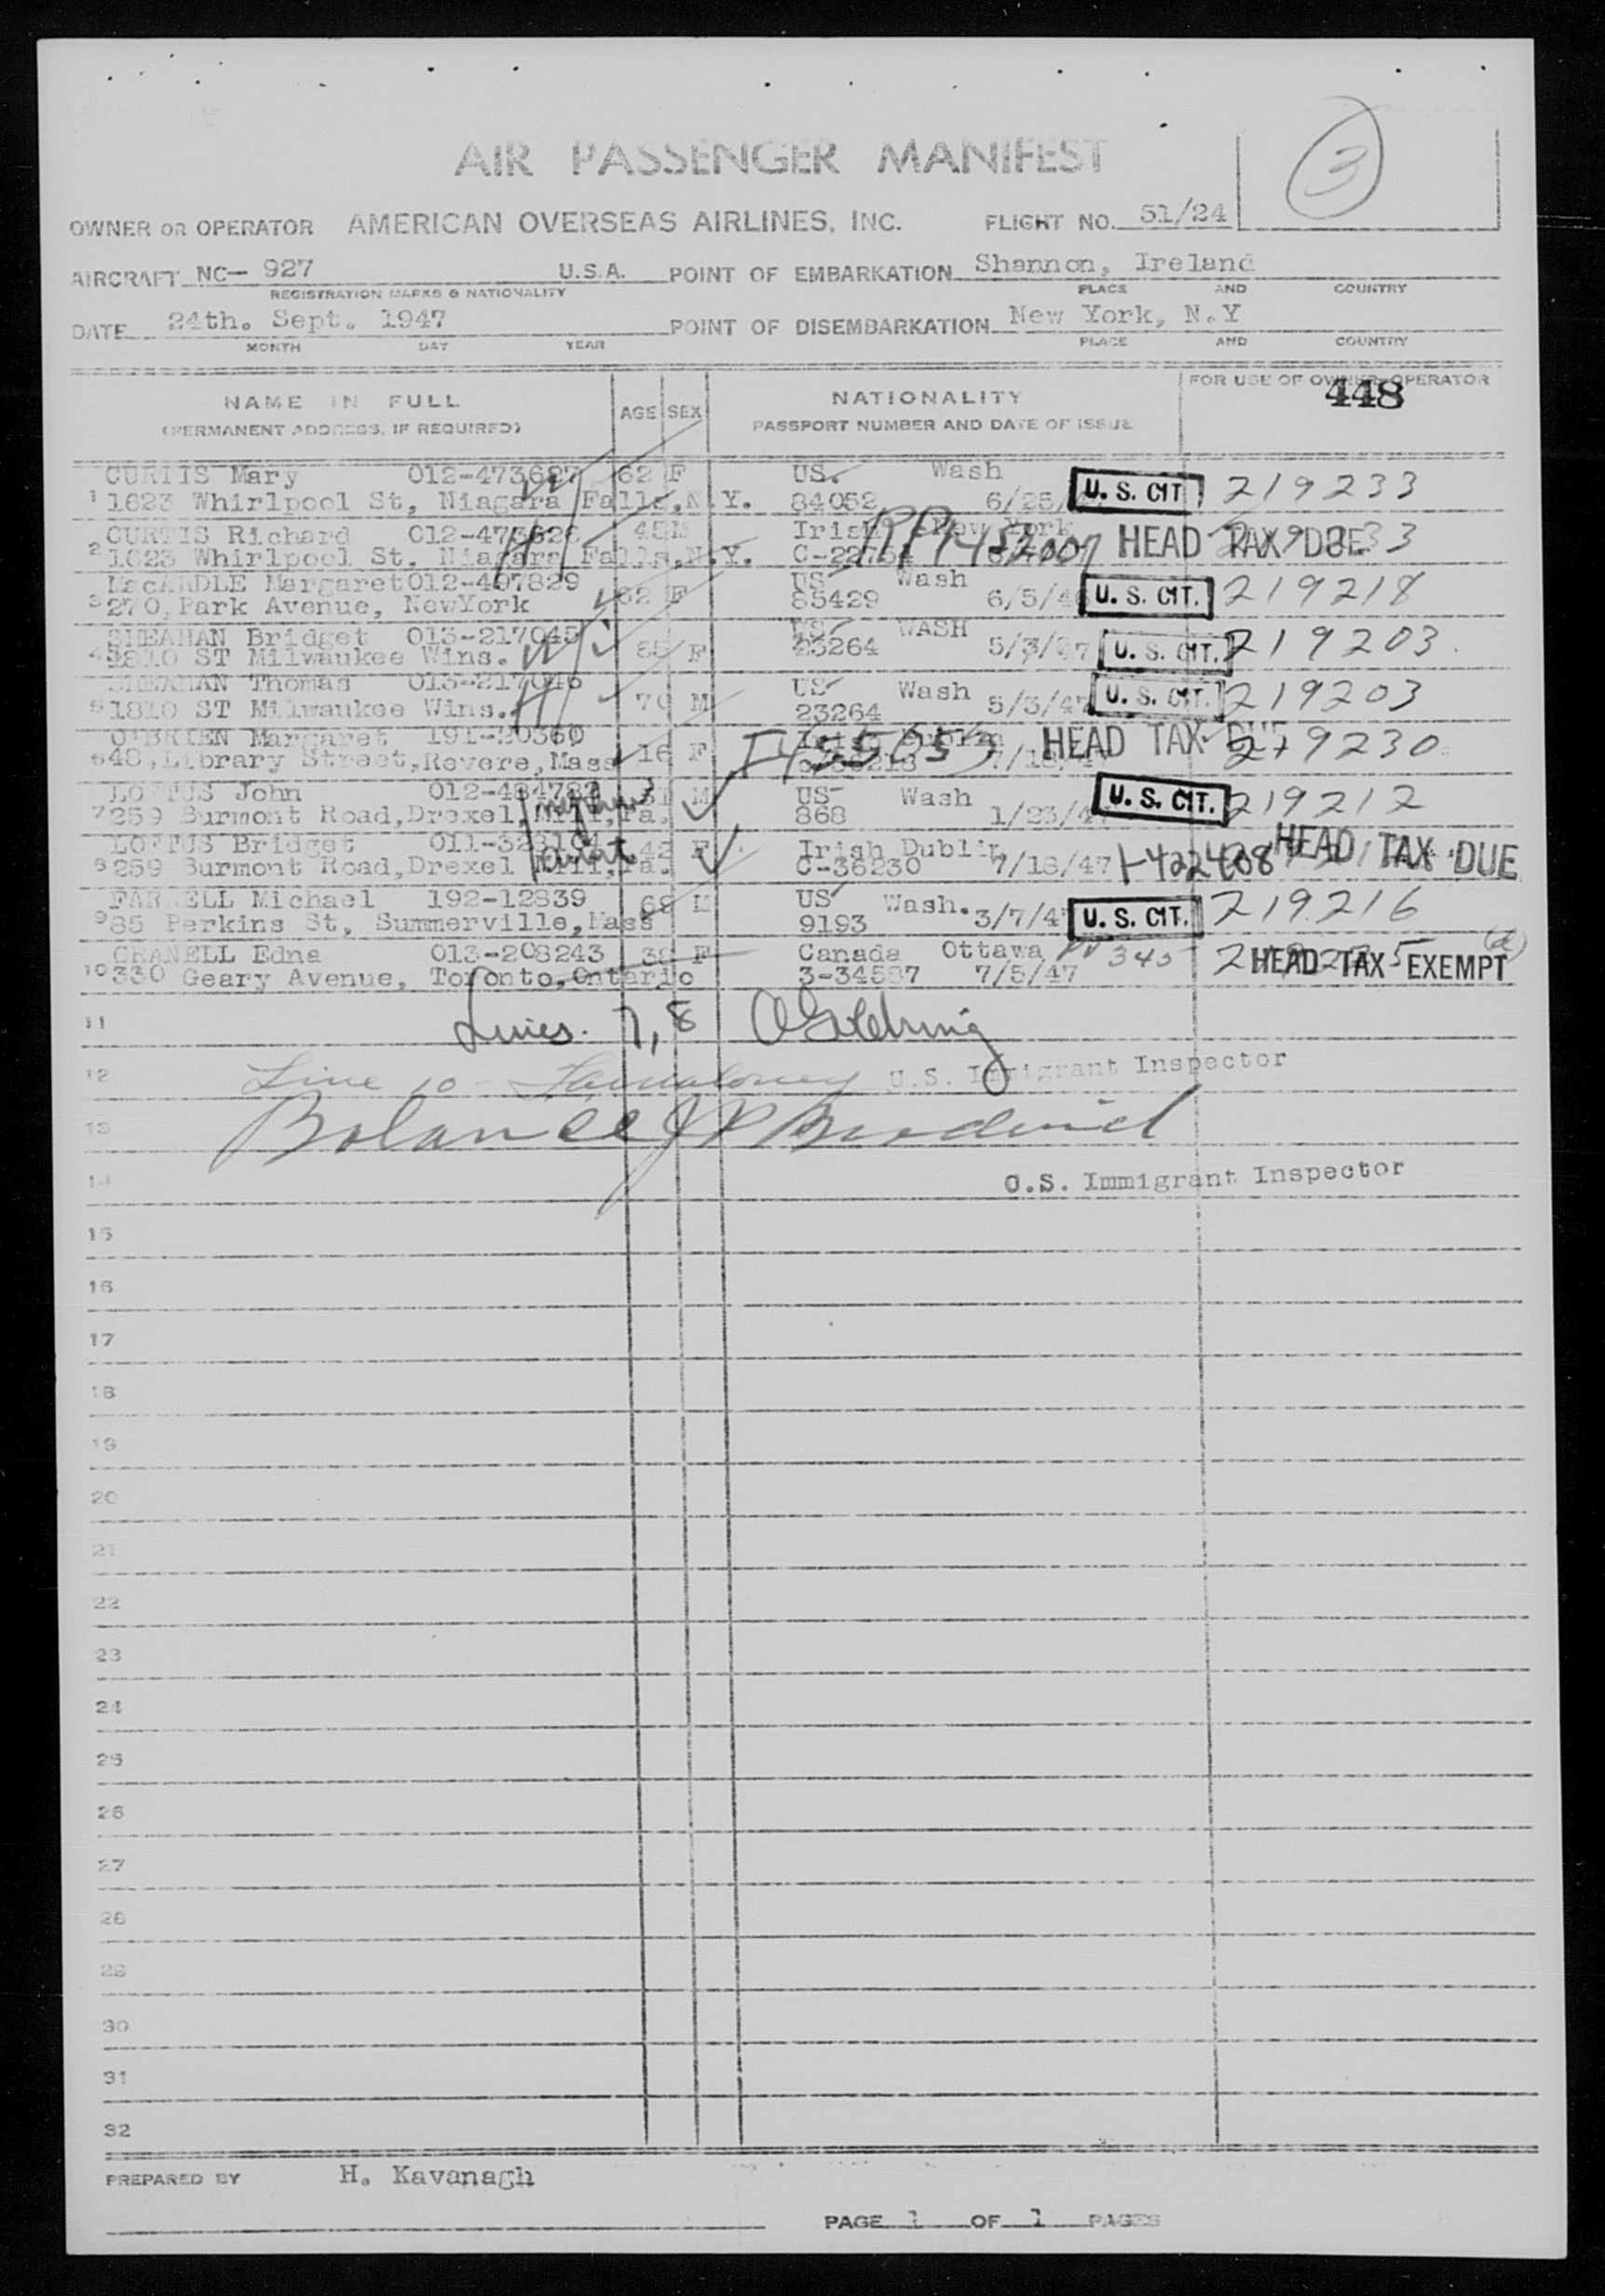 3
AIR PASSENGER MANIFEST
OWNER OR OPERATOR AMERICAN OVERSEAS AIRLINES, INC. FLIGHT NO. 51/24
AIRCRAFT NC— 927 U.S.A. POINT OF EMBARKATION Shannon, Ireland
REGISTRATION MARKS & NATIONALITY PLACE AND COUNTRY
DATE 24th. Sept. 1947 POINT OF DISEMBARKATION New York, N.Y
MONTH DAY YEAR PLACE AND COUNTRY
NAME IN FULL AGE SEX NATIONALITY FOR USE OF OWNER OPERATOR
448
(PERMANENT ADDRESS, IF REQUIRED) PASSPORT NUMBER AND DATE OF ISSUE
CURTIS Mary 62 F US. Wash
1 1623 Whirlpool St, Niagara Falls, N.Y. 84052 6/25/ U. S. CIT. 219233
CURTIS Richard 45 M Irish New York
2 1623 Whirlpool St, Niagara Falls, N.Y. HEAD TAX DUE
MacARDLE Margaret 012-407829 F US Wash
3 270, Park Avenue, NewYork 85429 6/5/4 U. S. CIT. 219218
SHEAHAN Bridget 013-217045 65 F US WASH
4 1810 ST Milwaukee Wins. 23264 5/3/47 U. S. CIT. 219203
SHEAHAN Thomas 013-217046 70 M US Wash
5 1810 ST Milwaukee Wins. 23264 5/3/47 U. S. CIT. 219203
O'BRIEN Margaret 191-20360 16 F HEAD TAX DUE
6 48, Library Street, Revere, Mass 219230
LOFTUS John M US Wash
7 259 Burmont Road, Drexel Hill, Pa. 868 1/23/4 U. S. CIT. 219212
LOFTUS Bridget 42 F Irish Dublin HEAD TAX DUE
8 259 Burmont Road, Drexel Hill, Pa. C-36230 7/18/47
FARRELL Michael 192-12839 M US Wash.
9 85 Perkins St, Summerville, Mass 9193 3/7/4 U. S. CIT. 219216
CRANELL Edna 013-208243 38 F Canada Ottawa
10 330 Geary Avenue, Toronto, Ontario 7/5/47 HEAD TAX EXEMPT
11 Lines. 7, 8
12 Line 10 U.S. Immigrant Inspector
13 Balance
14 U.S. Immigrant Inspector
15
16
17
18
19
20
21
22
23
24
25
26
27
28
29
30
31
32
PREPARED BY H. Kavanagh
PAGE 1 OF 1 PAGES